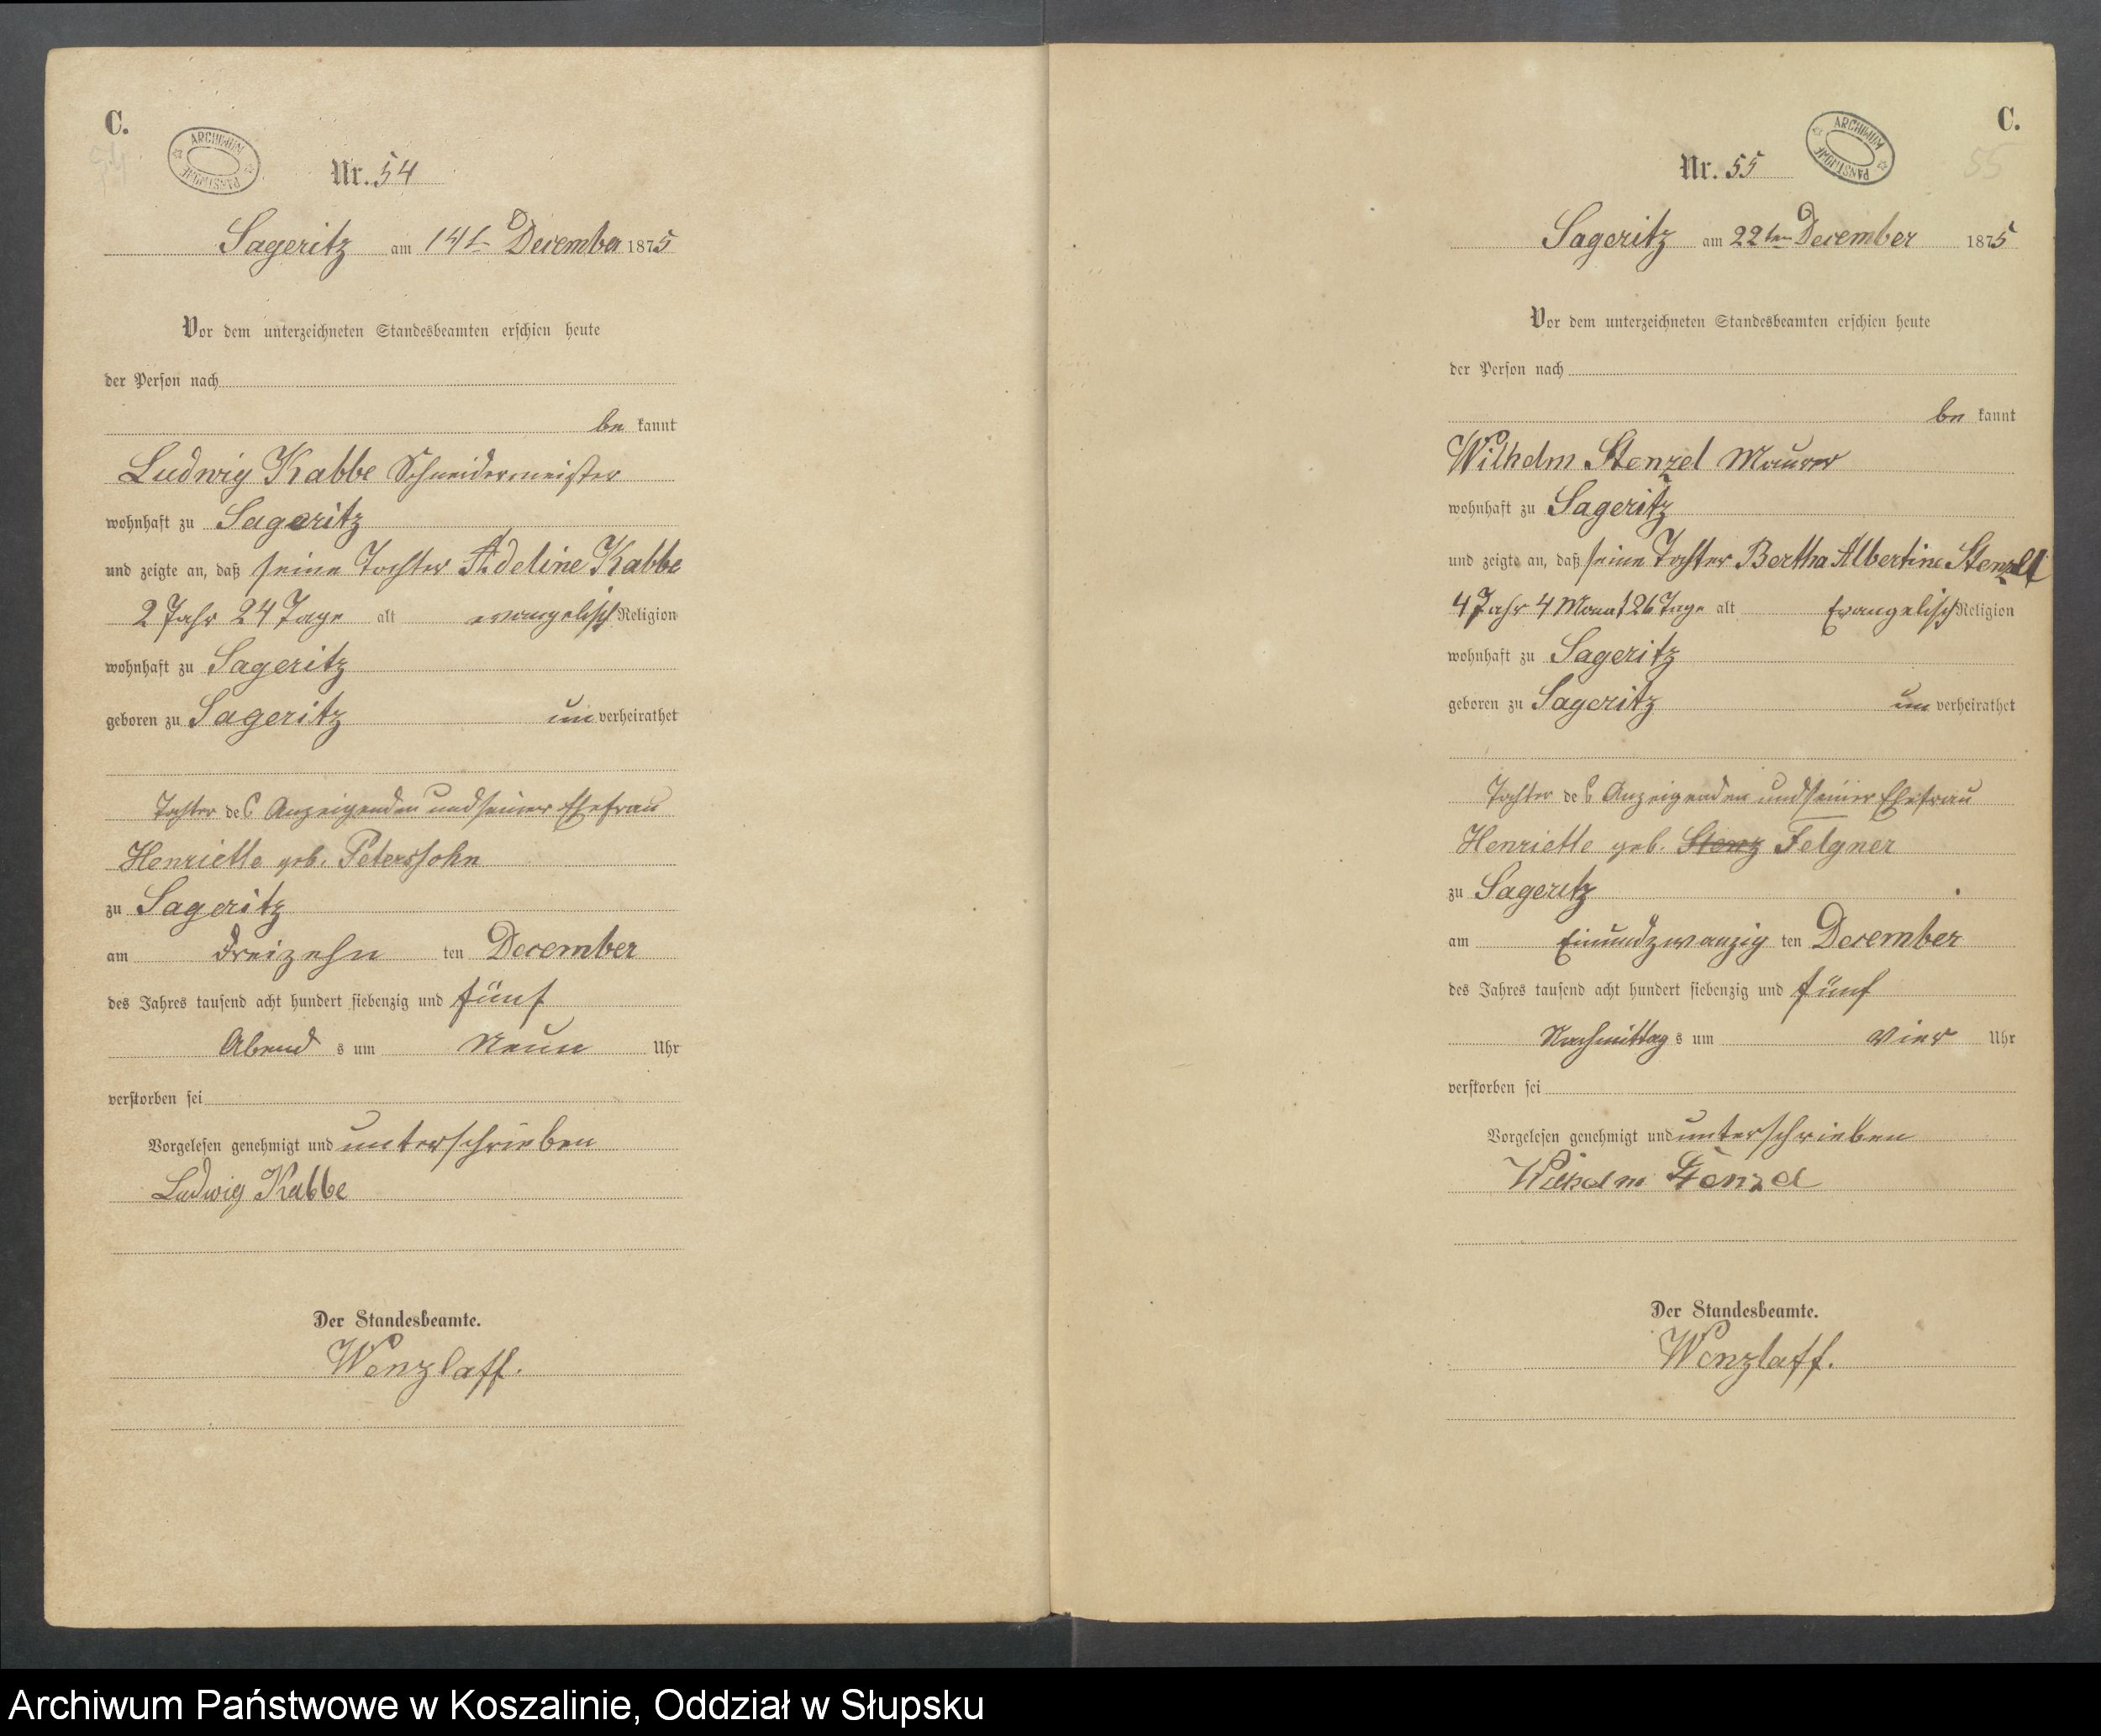 C.
ARCHIWUM PAŃSTWOWE
Nr. 54
Sageritz am 14t December 1875
Vor dem unterzeichneten Standesbeamten erschien heute
der Person nach
be kannt
Ludwig Kabbe Schneidermeister
wohnhaft zu Sageritz
und zeigte an, daß seine Tochter Adeline Kabbe
2 Jahr 24 Tage alt evangelisch Religion
wohnhaft zu Sageritz
geboren zu Sageritz un verheirathet
Tochter des Anzeigenden und seiner Ehefrau
Henriette geb. Peterssohn
zu Sageritz
am dreizehn ten December
des Jahres tausend acht hundert siebenzig und fünf
Abend s um Neun Uhr
verstorben sei
Vorgelesen genehmigt und unterschrieben
Ludwig Kabbe
Der Standesbeamte.
Wenzlaff.
C.
ARCHIWUM PAŃSTWOWE
55
Nr. 55
Sageritz am 22ten December 1875
Vor dem unterzeichneten Standesbeamten erschien heute
der Person nach
be kannt
Wilhelm Stenzel Maurer
wohnhaft zu Sageritz
und zeigte an, daß seine Tochter Bertha Albertine Stenzel
4 Jahr 4 Monat 26 Tage alt Evangelisch Religion
wohnhaft zu Sageritz
geboren zu Sageritz un verheirathet
Tochter des Anzeigenden und seiner Ehefrau
Henriette geb. Stenz Felgner
zu Sageritz
am Einundzwanzig ten December
des Jahres tausend acht hundert siebenzig und fünf
Nachmittag s um vier Uhr
verstorben sei
Vorgelesen genehmigt und unterschrieben
Wilhelm Stenzel
Der Standesbeamte.
Wenzlaff.
Archiwum Państwowe w Koszalinie, Oddział w Słupsku